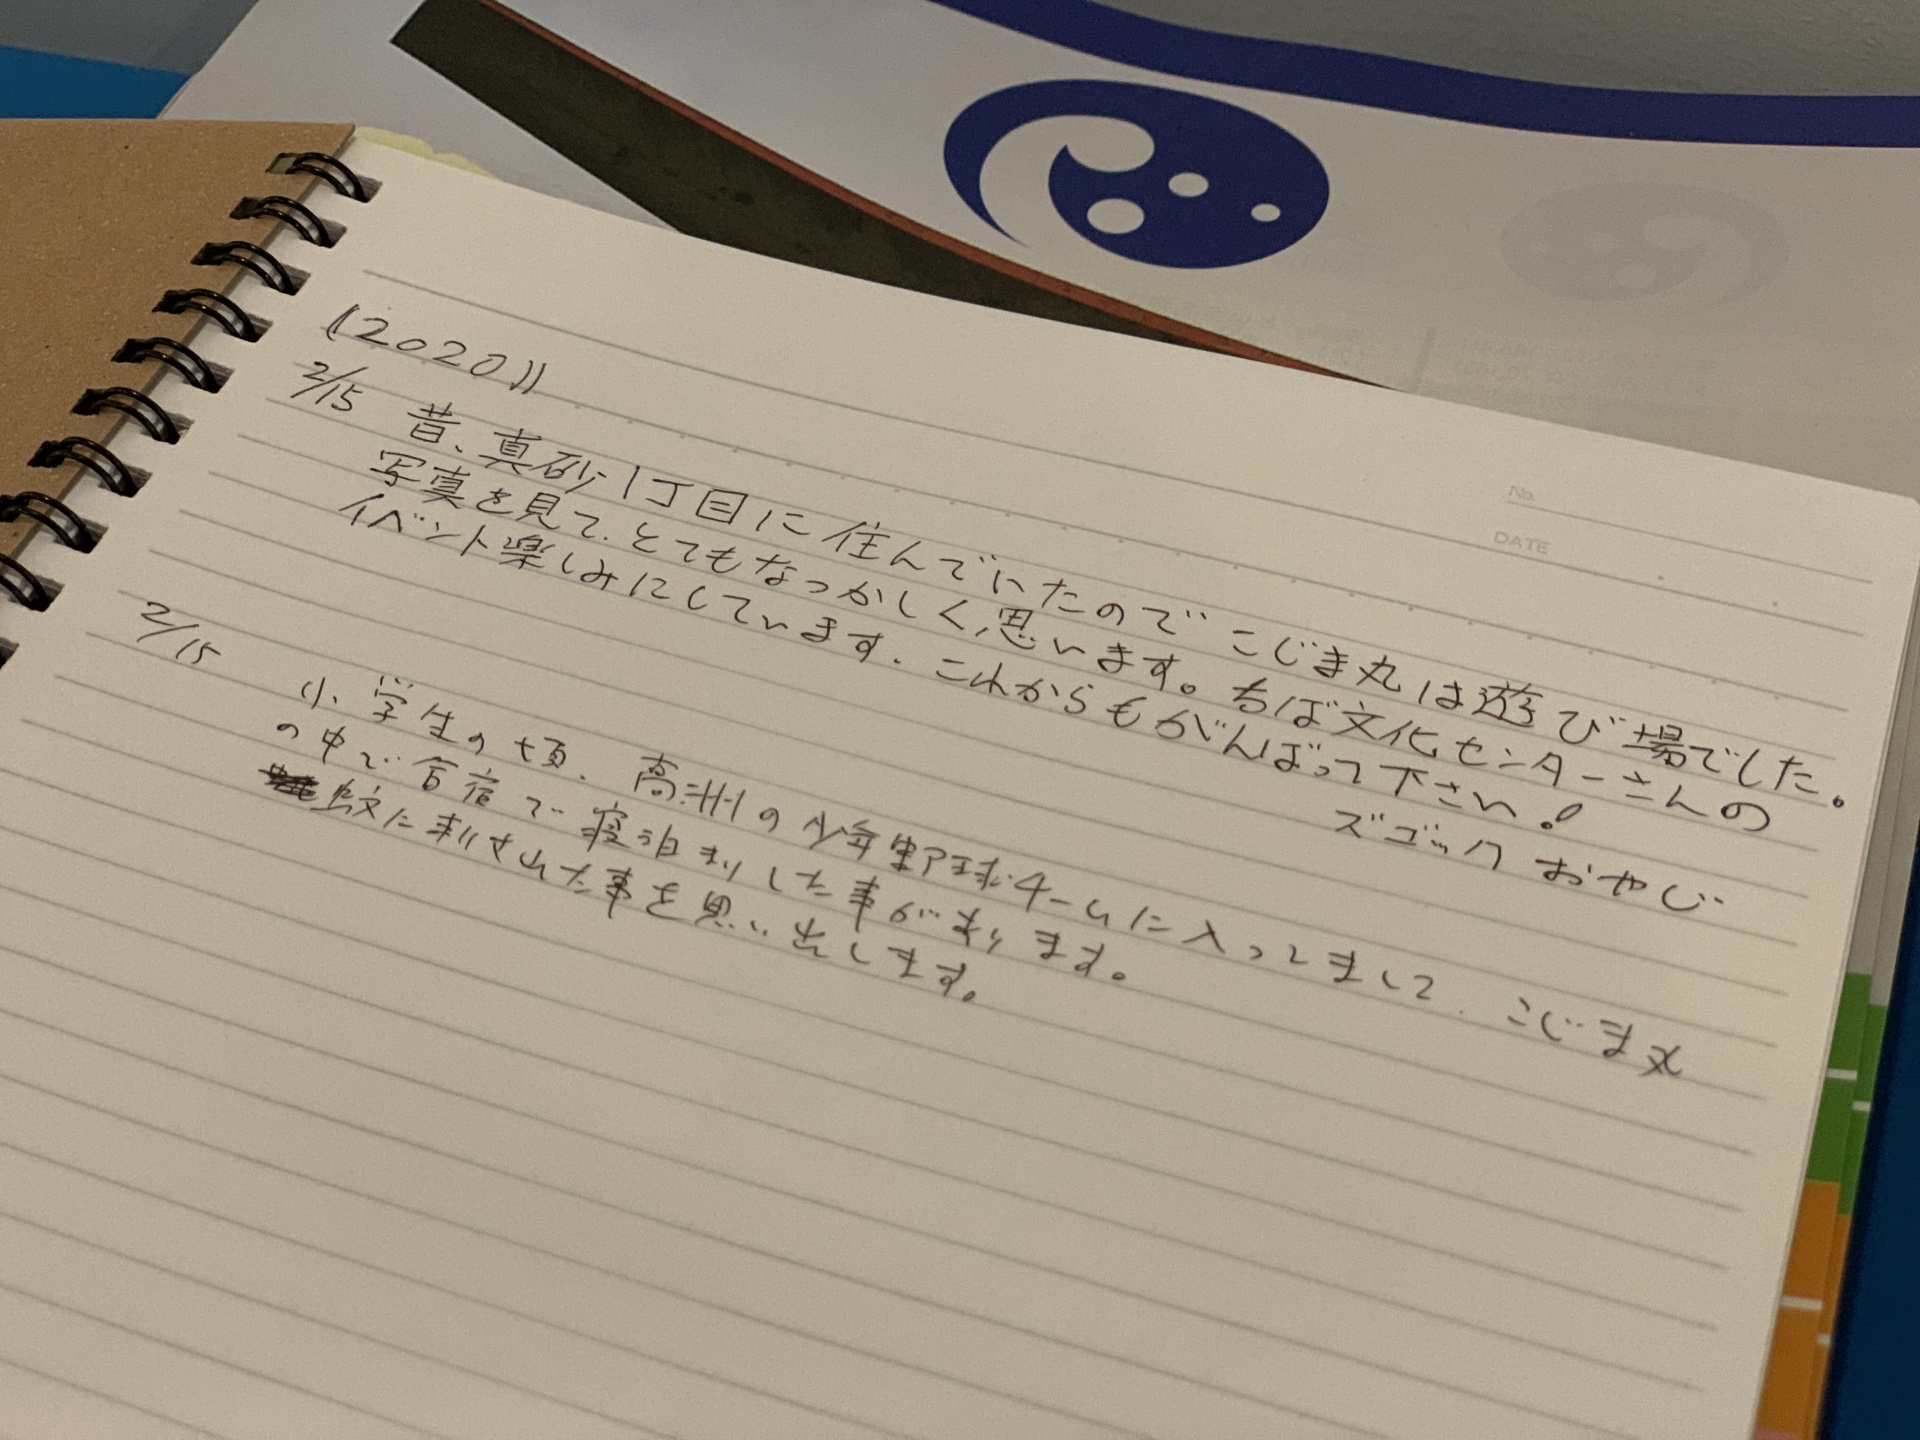 (2020)
2/15 昔、真砂1丁目に住んでいたのでこじま丸は遊び場でした。
写真を見て、とてもなつかしく思います。ちば文化センターさんの
イベント楽しみにしています。これからもがんばって下さい!
ズゴックおやじ
2/15 小学生の頃、高洲の少年野球チームに入ってまして、こじま丸
の中で合宿で寝泊まりした事があります。
蚊に刺された事を思い出します。
No.
DATE